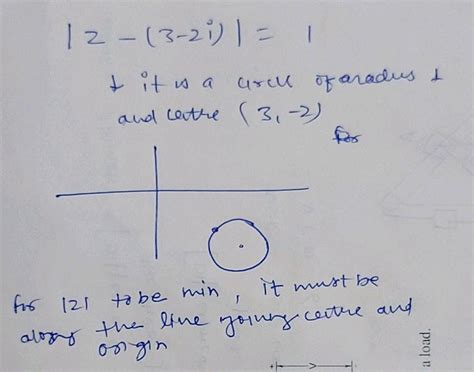 |z - (3-2i)| = 1
↓ it is a circle of aradius 1
and centre (3, -2)
for
for |z| to be min, it must be
along the line joining centre and
origin
a load.